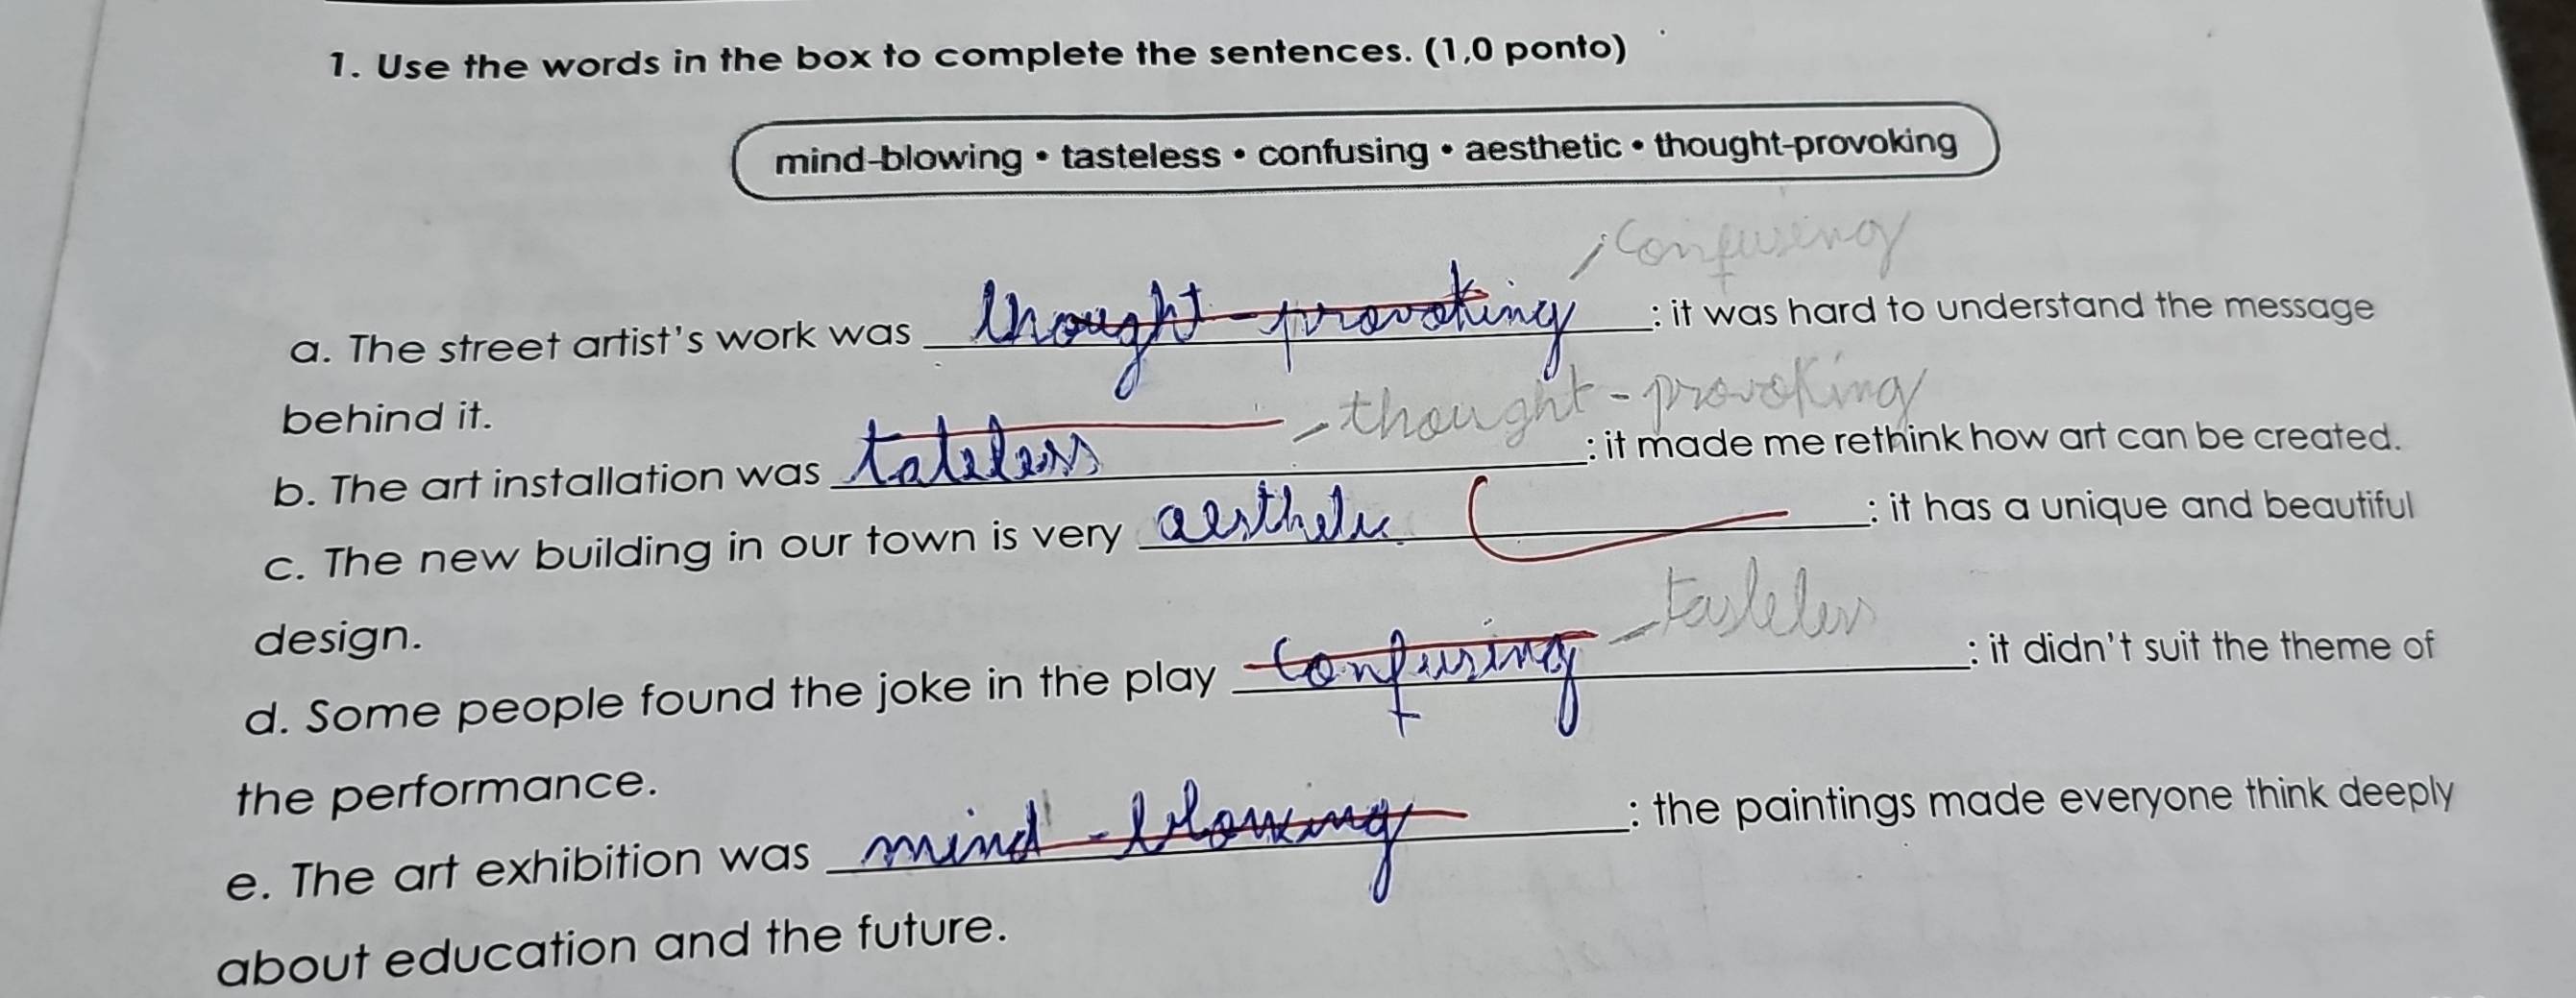 1. Use the words in the box to complete the sentences. (1,0 ponto)
mind-blowing • tasteless • confusing • aesthetic • thought-provoking
confusing
a. The street artist's work was thought-provoking : it was hard to understand the message
behind it.
- thought-provoking
b. The art installation was tateless : it made me rethink how art can be created.
c. The new building in our town is very : it has a unique and beautiful
design.
- tasteless
d. Some people found the joke in the play confusing : it didn't suit the theme of
the performance.
e. The art exhibition was mind-blowing : the paintings made everyone think deeply
about education and the future.